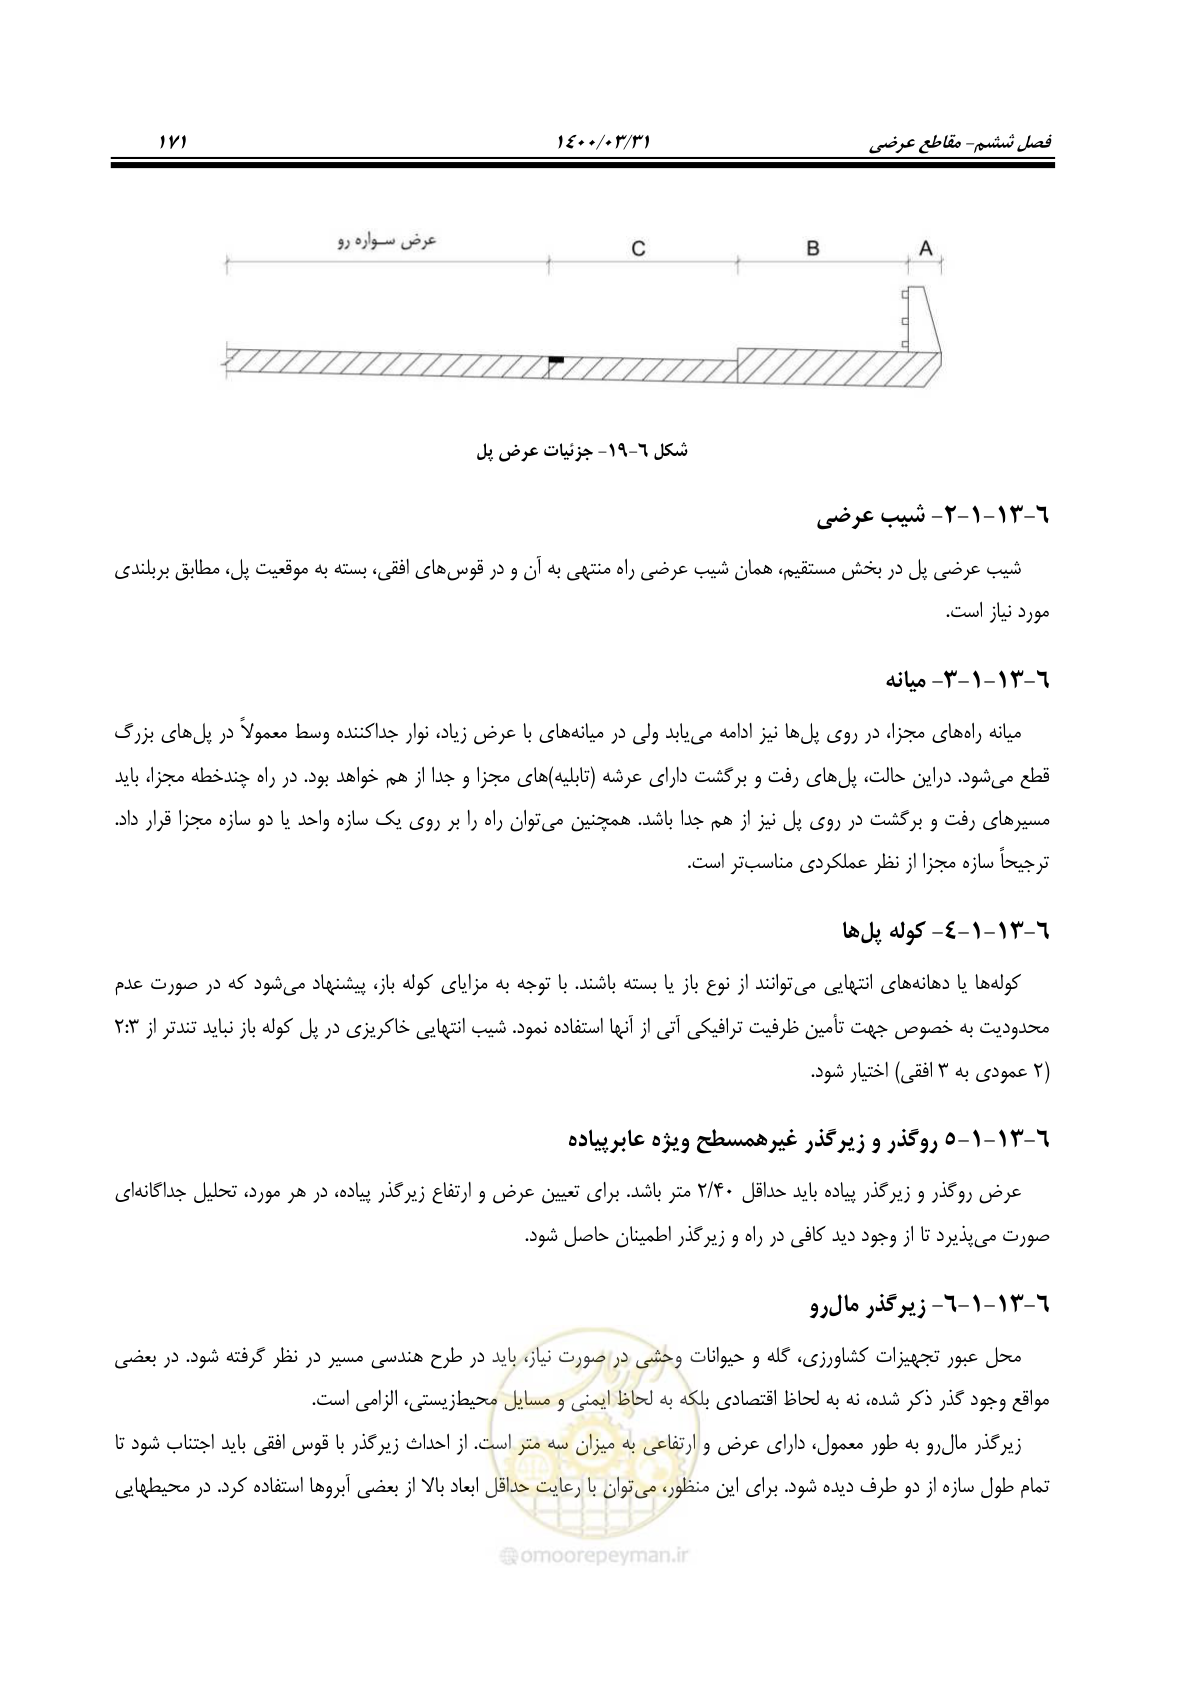 فصل ششم- مقاطع عرضی ۱۴۰۰/۰۳/۳۱ ۱۷۱
عرض سواره رو C B A
شکل ۶-۱۹- جزئیات عرض پل
۶-۱۳-۱-۲- شیب عرضی
شیب عرضی پل در بخش مستقیم، همان شیب عرضی راه منتهی به آن و در قوس‌های افقی، بسته به موقعیت پل، مطابق بربلندی
مورد نیاز است.
۶-۱۳-۱-۳- میانه
میانه راه‌های مجزا، در روی پل‌ها نیز ادامه می‌یابد ولی در میانه‌های با عرض زیاد، نوار جداکننده وسط معمولاً در پل‌های بزرگ
قطع می‌شود. دراین حالت، پل‌های رفت و برگشت دارای عرشه (تابلیه)های مجزا و جدا از هم خواهد بود. در راه چندخطه مجزا، باید
مسیرهای رفت و برگشت در روی پل نیز از هم جدا باشد. همچنین می‌توان راه را بر روی یک سازه واحد یا دو سازه مجزا قرار داد.
ترجیحاً سازه مجزا از نظر عملکردی مناسب‌تر است.
۶-۱۳-۱-۴- کوله پل‌ها
کوله‌ها یا دهانه‌های انتهایی می‌توانند از نوع باز یا بسته باشند. با توجه به مزایای کوله باز، پیشنهاد می‌شود که در صورت عدم
محدودیت به خصوص جهت تأمین ظرفیت ترافیکی آتی از آنها استفاده نمود. شیب انتهایی خاکریزی در پل کوله باز نباید تندتر از ۲:۳
(۲ عمودی به ۳ افقی) اختیار شود.
۶-۱۳-۱-۵ روگذر و زیرگذر غیرهمسطح ویژه عابرپیاده
عرض روگذر و زیرگذر پیاده باید حداقل ۲/۴۰ متر باشد. برای تعیین عرض و ارتفاع زیرگذر پیاده، در هر مورد، تحلیل جداگانه‌ای
صورت می‌پذیرد تا از وجود دید کافی در راه و زیرگذر اطمینان حاصل شود.
۶-۱۳-۱-۶- زیرگذر مال‌رو
محل عبور تجهیزات کشاورزی، گله و حیوانات وحشی در صورت نیاز، باید در طرح هندسی مسیر در نظر گرفته شود. در بعضی
مواقع وجود گذر ذکر شده، نه به لحاظ اقتصادی بلکه به لحاظ ایمنی و مسایل محیط‌زیستی، الزامی است.
زیرگذر مال‌رو به طور معمول، دارای عرض و ارتفاعی به میزان سه متر است. از احداث زیرگذر با قوس افقی باید اجتناب شود تا
تمام طول سازه از دو طرف دیده شود. برای این منظور، می‌توان با رعایت حداقل ابعاد بالا از بعضی آبروها استفاده کرد. در محیطهایی
@omoorepeyman.ir